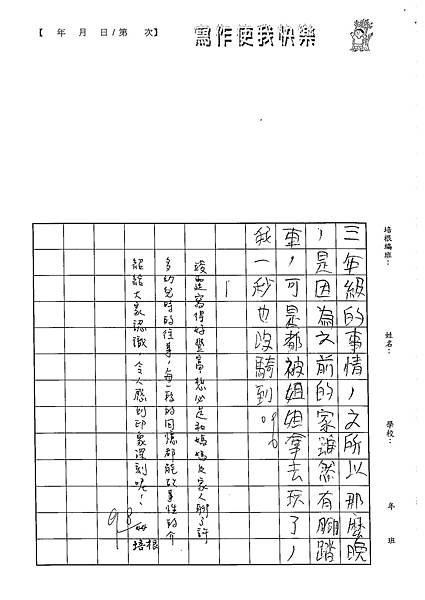 【 年 月 日/第 次】
寫作使我快樂
培根編班：
姓名：
學校：
年 班
三年級的事情，文所以那麼晚
，是因為文前的家雖然有腳踏
車，可是都被姐姐拿去玩了，
我一秒也沒騎到。
凌霆寫得好豐富想必是和媽媽及家人聊了許
多幼兒時的往事，每一段的回憶都能故事性的介
紹給大家認識，令人感到印象深刻呢！
培根
98